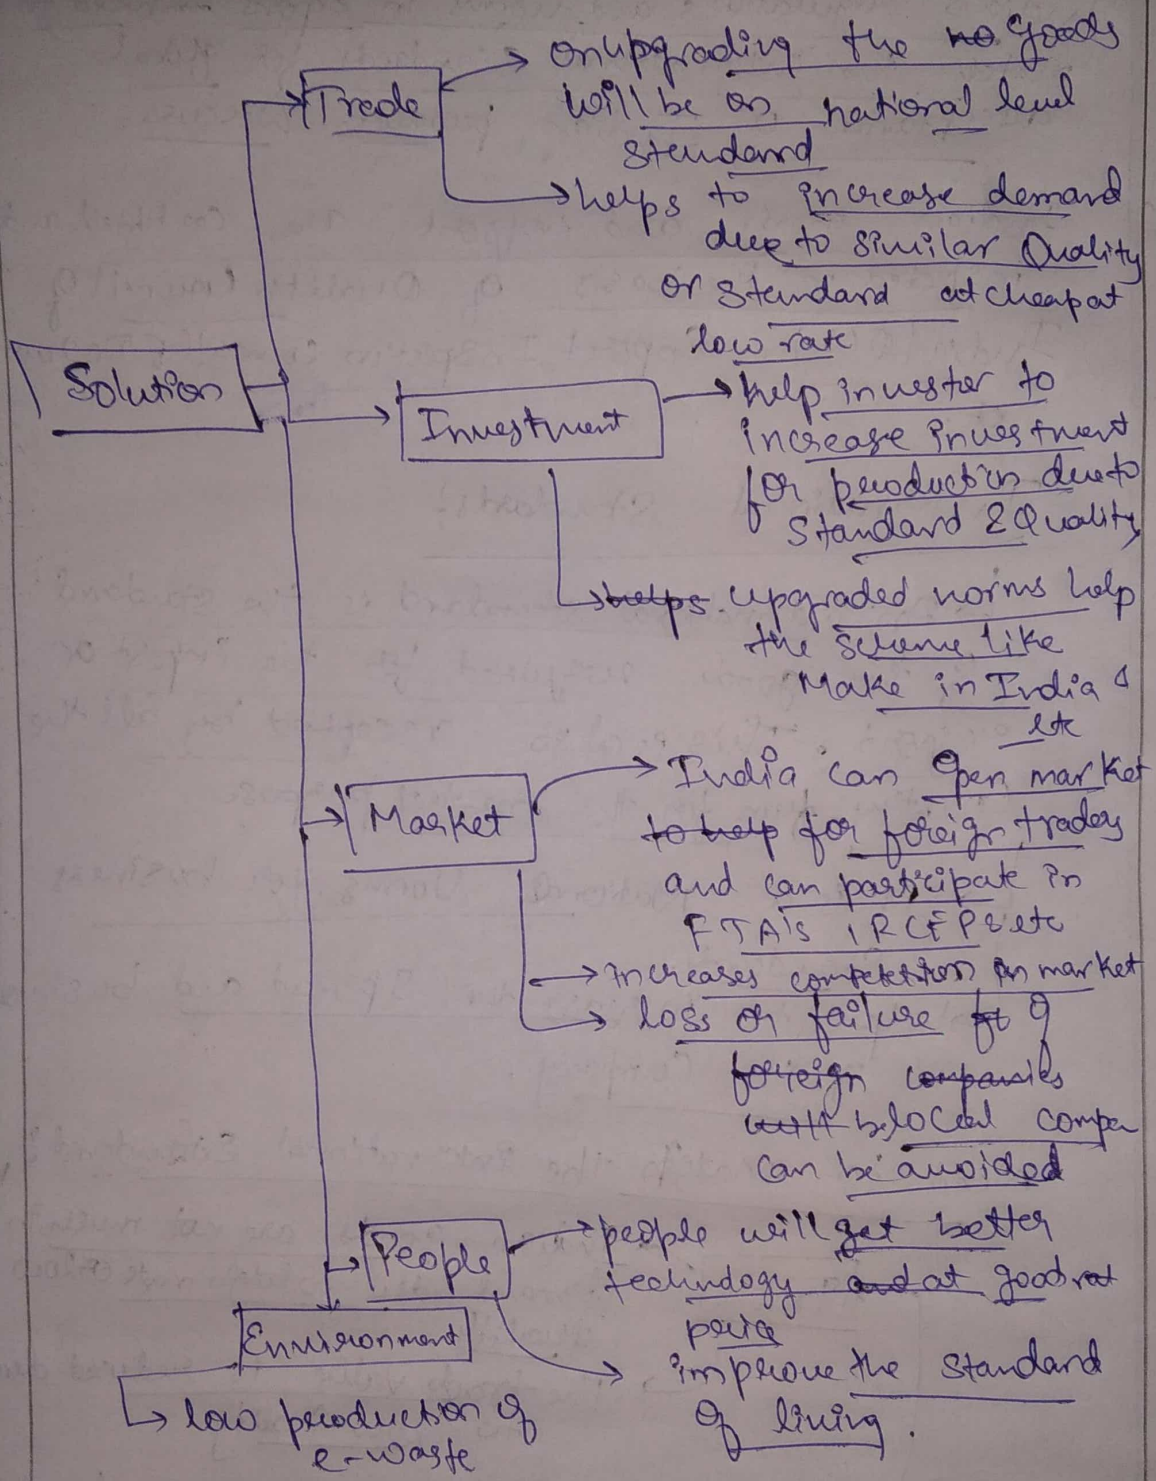 Solution
Trade
on upgrading the goods
will be on national level
standard
helps to increase demand
due to similar Quality
or standard at cheap at
low rate
Investment
help investor to
increase investment
for production due to
Standard & Quality
helps. upgraded norms help
the scheme like
Make in India &
etc
Market
India can open market
to help for foreign traders
and can participate in
FTA's, RCEP & etc
increases competition in market
loss or failure of
foreign companies
local compa
can be avoided
People
people will get better
technology and at good
price
improve the standard
of living.
Environment
low production of
e-waste